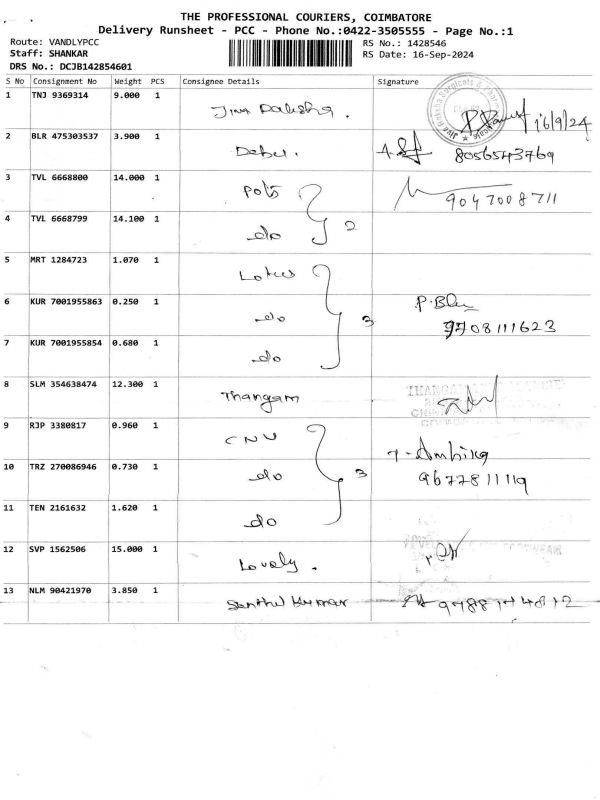 THE PROFESSIONAL COURIERS, COIMBATORE
Delivery Runsheet - PCC - Phone No.:0422-3505555 - Page No.:1
Route: VANDLYPCC
Staff: SHANKAR
DRS No.: DCJB142854601
RS No.: 1428546
RS Date: 16-Sep-2024
S No Consignment No Weight PCS Consignee Details Signature
1 TNJ 9369314 9.000 1 Jiva Raksha. 16/9/24
2 BLR 475303537 3.900 1 8056543769
3 TVL 6668800 14.000 1 Pots 9047008711
4 TVL 6668799 14.100 1 do 2
5 MRT 1284723 1.070 1 Lotus
6 KUR 7001955863 0.250 1 do 3 9708111623
7 KUR 7001955854 0.680 1 do
8 SLM 354638474 12.300 1 Thangam
9 RJP 3380817 0.960 1 CNU T. Ambika
10 TRZ 270086946 0.730 1 do 3 9677811119
11 TEN 2161632 1.620 1 do
12 SVP 1562506 15.000 1 Lovely.
13 NLM 90421970 3.850 1 Senthil Kumar